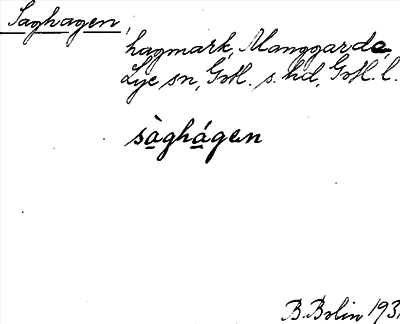 Saghagen,
hagmark, Manggarda,
Lye sn, Gotl. s. hd, Gotl. l.
sàghágen
B. Bolin 193